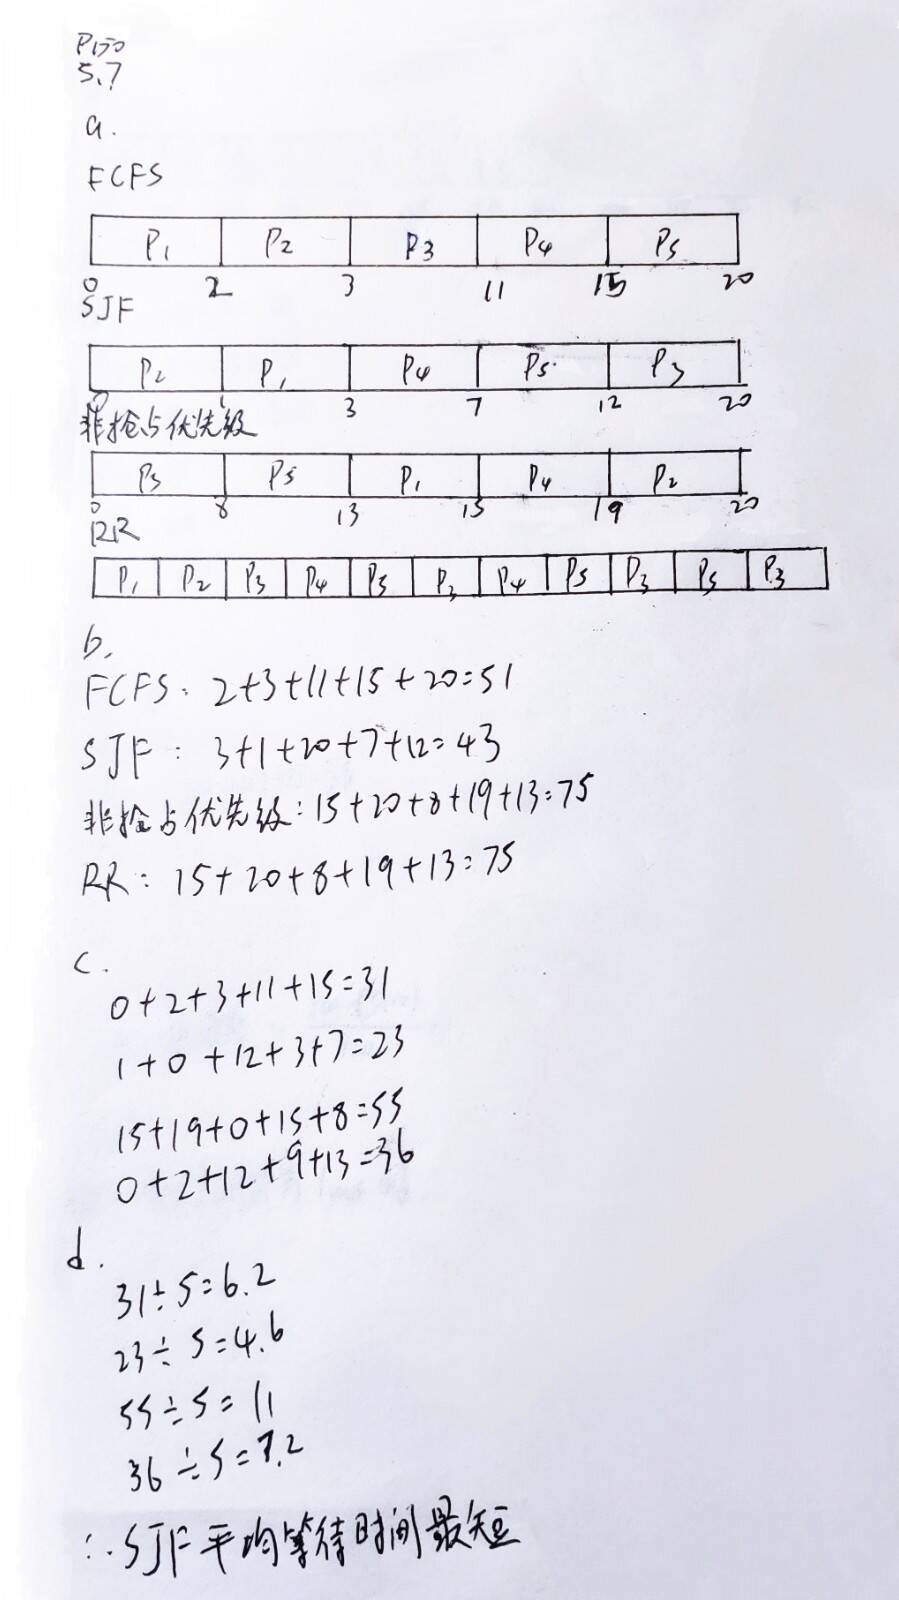 P170
5.7
a.
FCFS
P1 P2 P3 P4 P5
0 2 3 11 15 20
SJF
P2 P1 P4 P5 P3
0 1 3 7 12 20
非抢占优先级
P3 P5 P1 P4 P2
0 8 13 15 19 20
RR
P1 P2 P3 P4 P5 P3 P4 P5 P3 P5 P3
b.
FCFS: 2+3+11+15+20=51
SJF: 3+1+20+7+12=43
非抢占优先级:15+20+8+19+13=75
RR: 15+20+8+19+13=75
c.
0+2+3+11+15=31
1+0+12+3+7=23
15+19+0+15+8=55
0+2+12+9+13=36
d.
31÷5=6.2
23÷5=4.6
55÷5=11
36÷5=7.2
∴SJF平均等待时间最短